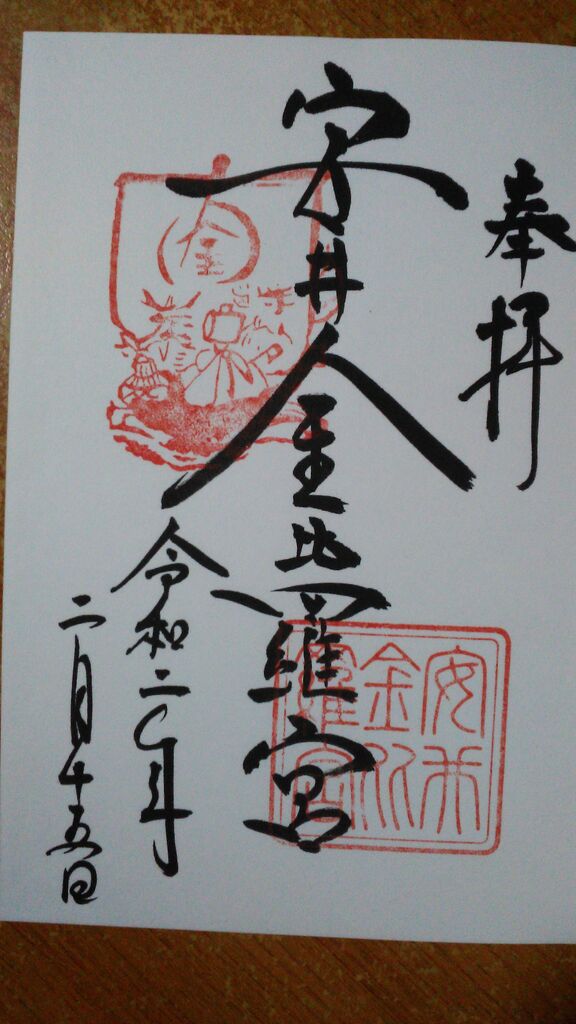 奉拝
安井金比羅宮
令和二年
二月十五日
金
安井
金比
羅宮